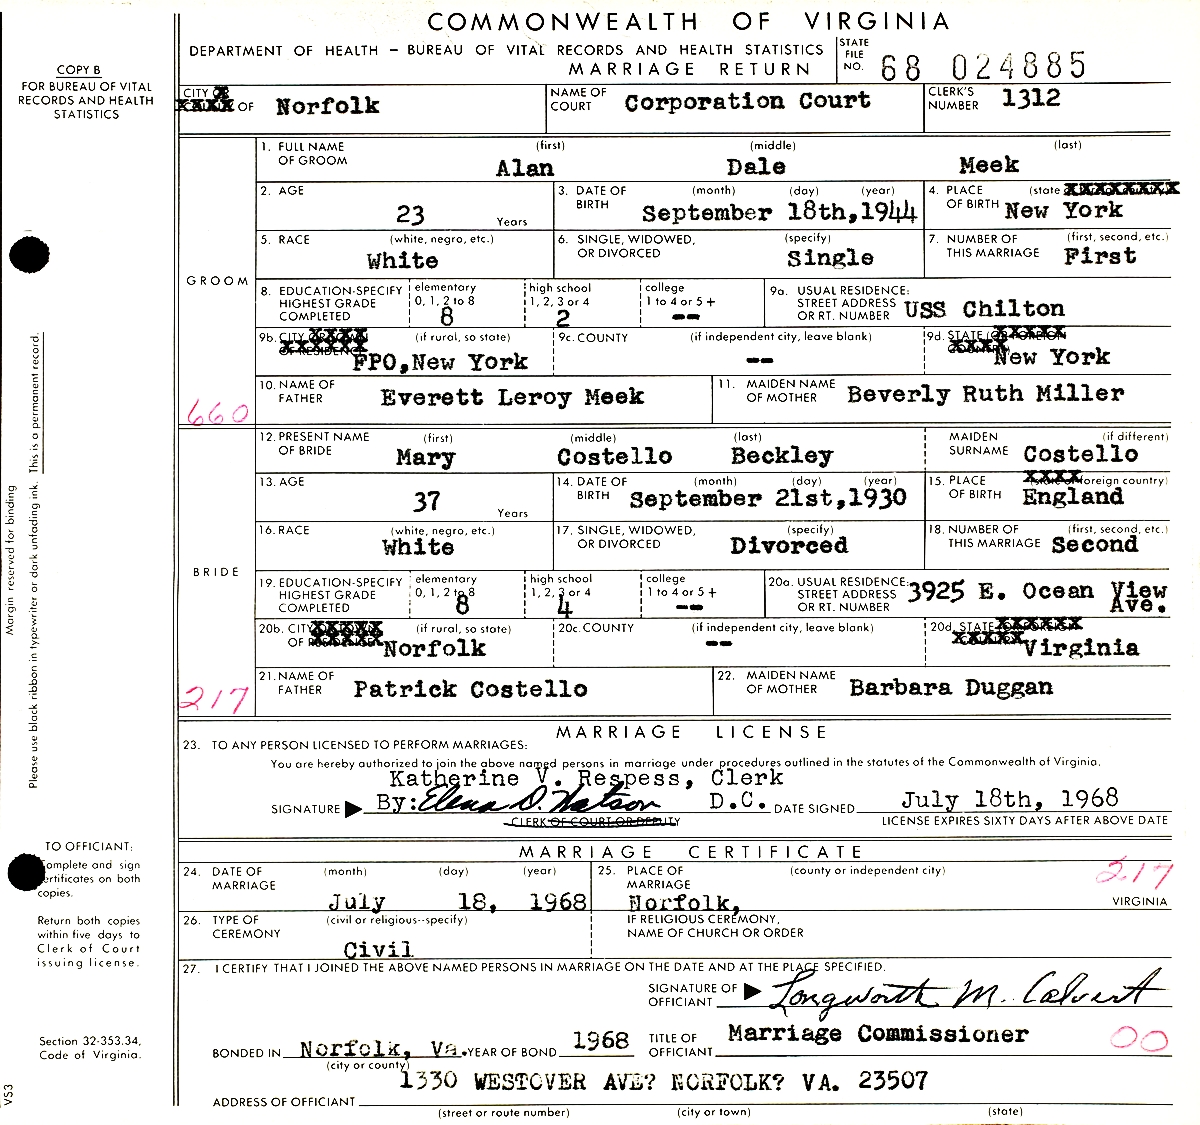 COMMONWEALTH OF VIRGINIA
DEPARTMENT OF HEALTH – BUREAU OF VITAL RECORDS AND HEALTH STATISTICS
MARRIAGE RETURN
STATE FILE NO. 68 024885
COPY B
FOR BUREAU OF VITAL
RECORDS AND HEALTH
STATISTICS
CITY OF Norfolk
NAME OF COURT Corporation Court
CLERK'S NUMBER 1312
GROOM
1. FULL NAME OF GROOM (first) (middle) (last)
Alan Dale Meek
2. AGE 23 Years
3. DATE OF BIRTH (month) (day) (year)
September 18th,1944
4. PLACE OF BIRTH (state
New York
5. RACE (white, negro, etc.)
White
6. SINGLE, WIDOWED, OR DIVORCED (specify)
Single
7. NUMBER OF THIS MARRIAGE (first, second, etc.)
First
8. EDUCATION-SPECIFY HIGHEST GRADE COMPLETED
elementary 0, 1, 2 to 8
8
high school 1, 2, 3 or 4
2
college 1 to 4 or 5 +
--
9a. USUAL RESIDENCE: STREET ADDRESS OR RT. NUMBER
USS Chilton
9b. CITY OF RESIDENCE (if rural, so state)
FPO,New York
9c. COUNTY (if independent city, leave blank)
--
9d. STATE
New York
10. NAME OF FATHER Everett Leroy Meek
11. MAIDEN NAME OF MOTHER Beverly Ruth Miller
660
BRIDE
12. PRESENT NAME OF BRIDE (first) (middle) (last)
Mary Costello Beckley
MAIDEN SURNAME (if different)
Costello
13. AGE 37 Years
14. DATE OF BIRTH (month) (day) (year)
September 21st,1930
15. PLACE OF BIRTH foreign country)
England
16. RACE (white, negro, etc.)
White
17. SINGLE, WIDOWED, OR DIVORCED (specify)
Divorced
18. NUMBER OF THIS MARRIAGE (first, second, etc.)
Second
19. EDUCATION-SPECIFY HIGHEST GRADE COMPLETED
elementary 0, 1, 2 to 8
8
high school 1, 2, 3 or 4
4
college 1 to 4 or 5 +
--
20a. USUAL RESIDENCE: STREET ADDRESS OR RT. NUMBER
3925 E. Ocean View Ave.
20b. CITY OF RESIDENCE (if rural, so state)
Norfolk
20c. COUNTY (if independent city, leave blank)
--
20d. STATE
Virginia
21. NAME OF FATHER Patrick Costello
22. MAIDEN NAME OF MOTHER Barbara Duggan
217
MARRIAGE LICENSE
23. TO ANY PERSON LICENSED TO PERFORM MARRIAGES:
You are hereby authorized to join the above named persons in marriage under procedures outlined in the statutes of the Commonwealth of Virginia.
Katherine V. Respess, Clerk
SIGNATURE By: Elena D. Watson D.C. DATE SIGNED July 18th, 1968
CLERK OF COURT OR DEPUTY
LICENSE EXPIRES SIXTY DAYS AFTER ABOVE DATE
MARRIAGE CERTIFICATE
24. DATE OF MARRIAGE (month) (day) (year)
July 18, 1968
25. PLACE OF MARRIAGE (county or independent city)
Norfolk, VIRGINIA
217
26. TYPE OF CEREMONY (civil or religious--specify)
Civil
IF RELIGIOUS CEREMONY, NAME OF CHURCH OR ORDER
27. I CERTIFY THAT I JOINED THE ABOVE NAMED PERSONS IN MARRIAGE ON THE DATE AND AT THE PLACE SPECIFIED.
SIGNATURE OF OFFICIANT Longworth M. Calvert
BONDED IN Norfolk, Va. YEAR OF BOND 1968
(city or county)
TITLE OF OFFICIANT Marriage Commissioner
00
1330 WESTOVER AVE? NORFOLK? VA. 23507
ADDRESS OF OFFICIANT
(street or route number) (city or town) (state)
Margin reserved for binding
Please use black ribbon in typewriter or dark unfading ink. This is a permanent record.
TO OFFICIANT:
Complete and sign
certificates on both
copies.
Return both copies
within five days to
Clerk of Court
issuing license.
Section 32-353.34,
Code of Virginia.
VS3